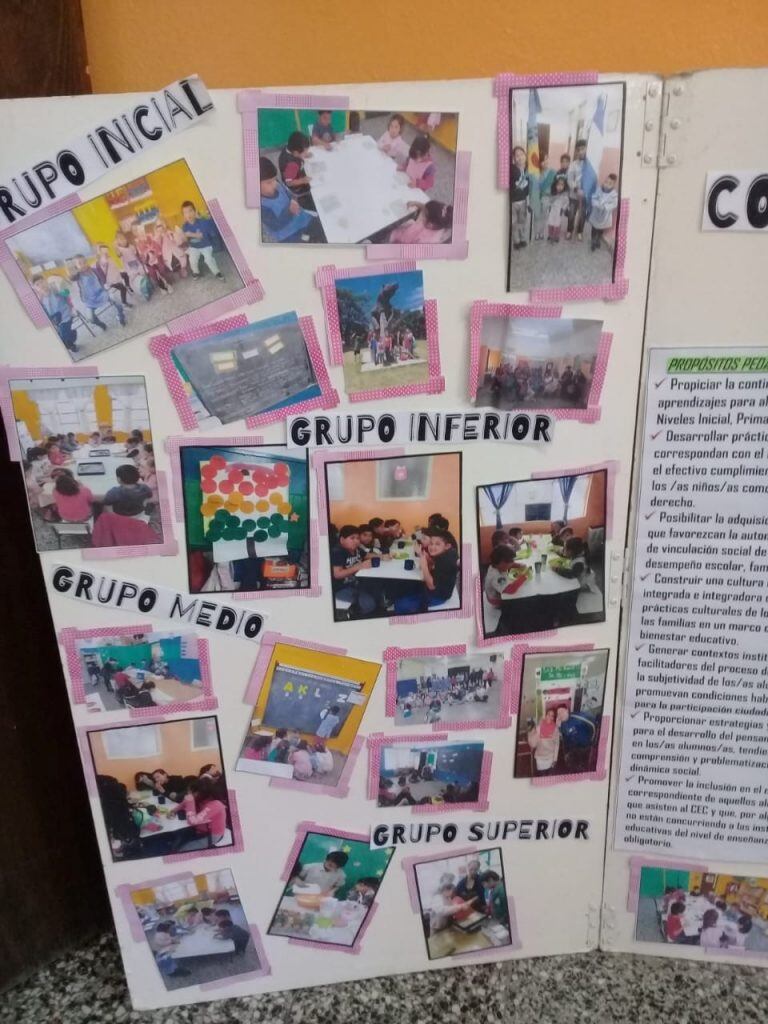 GRUPO INICIAL
GRUPO INFERIOR
GRUPO MEDIO
AKLZ
GRUPO SUPERIOR
CO
PROPÓSITOS PEDA
✓ Propiciar la conti
aprendizajes para al
Niveles Inicial, Prima
✓ Desarrollar práctic
correspondan con el
el efectivo cumplimien
los /as niños/as como
derecho.
✓ Posibilitar la adquisic
que favorezcan la auton
de vinculación social de
desempeño escolar, fam
✓ Construir una cultura
integrada e integradora
prácticas culturales de lo
las familias en un marco
bienestar educativo.
✓ Generar contextos instit
facilitadores del proceso d
la subjetividad de los/as alu
promuevan condiciones hab
para la participación ciudada
✓ Proporcionar estrategias
para el desarrollo del pensa
en los/as alumnos/as, tendie
comprensión y problematizac
dinámica social.
✓ Promover la inclusión en el
correspondiente de aquellos al
que asisten al CEC y que, por al
no están concurriendo a las inst
educativas del nivel de enseñanz
obligatorio.